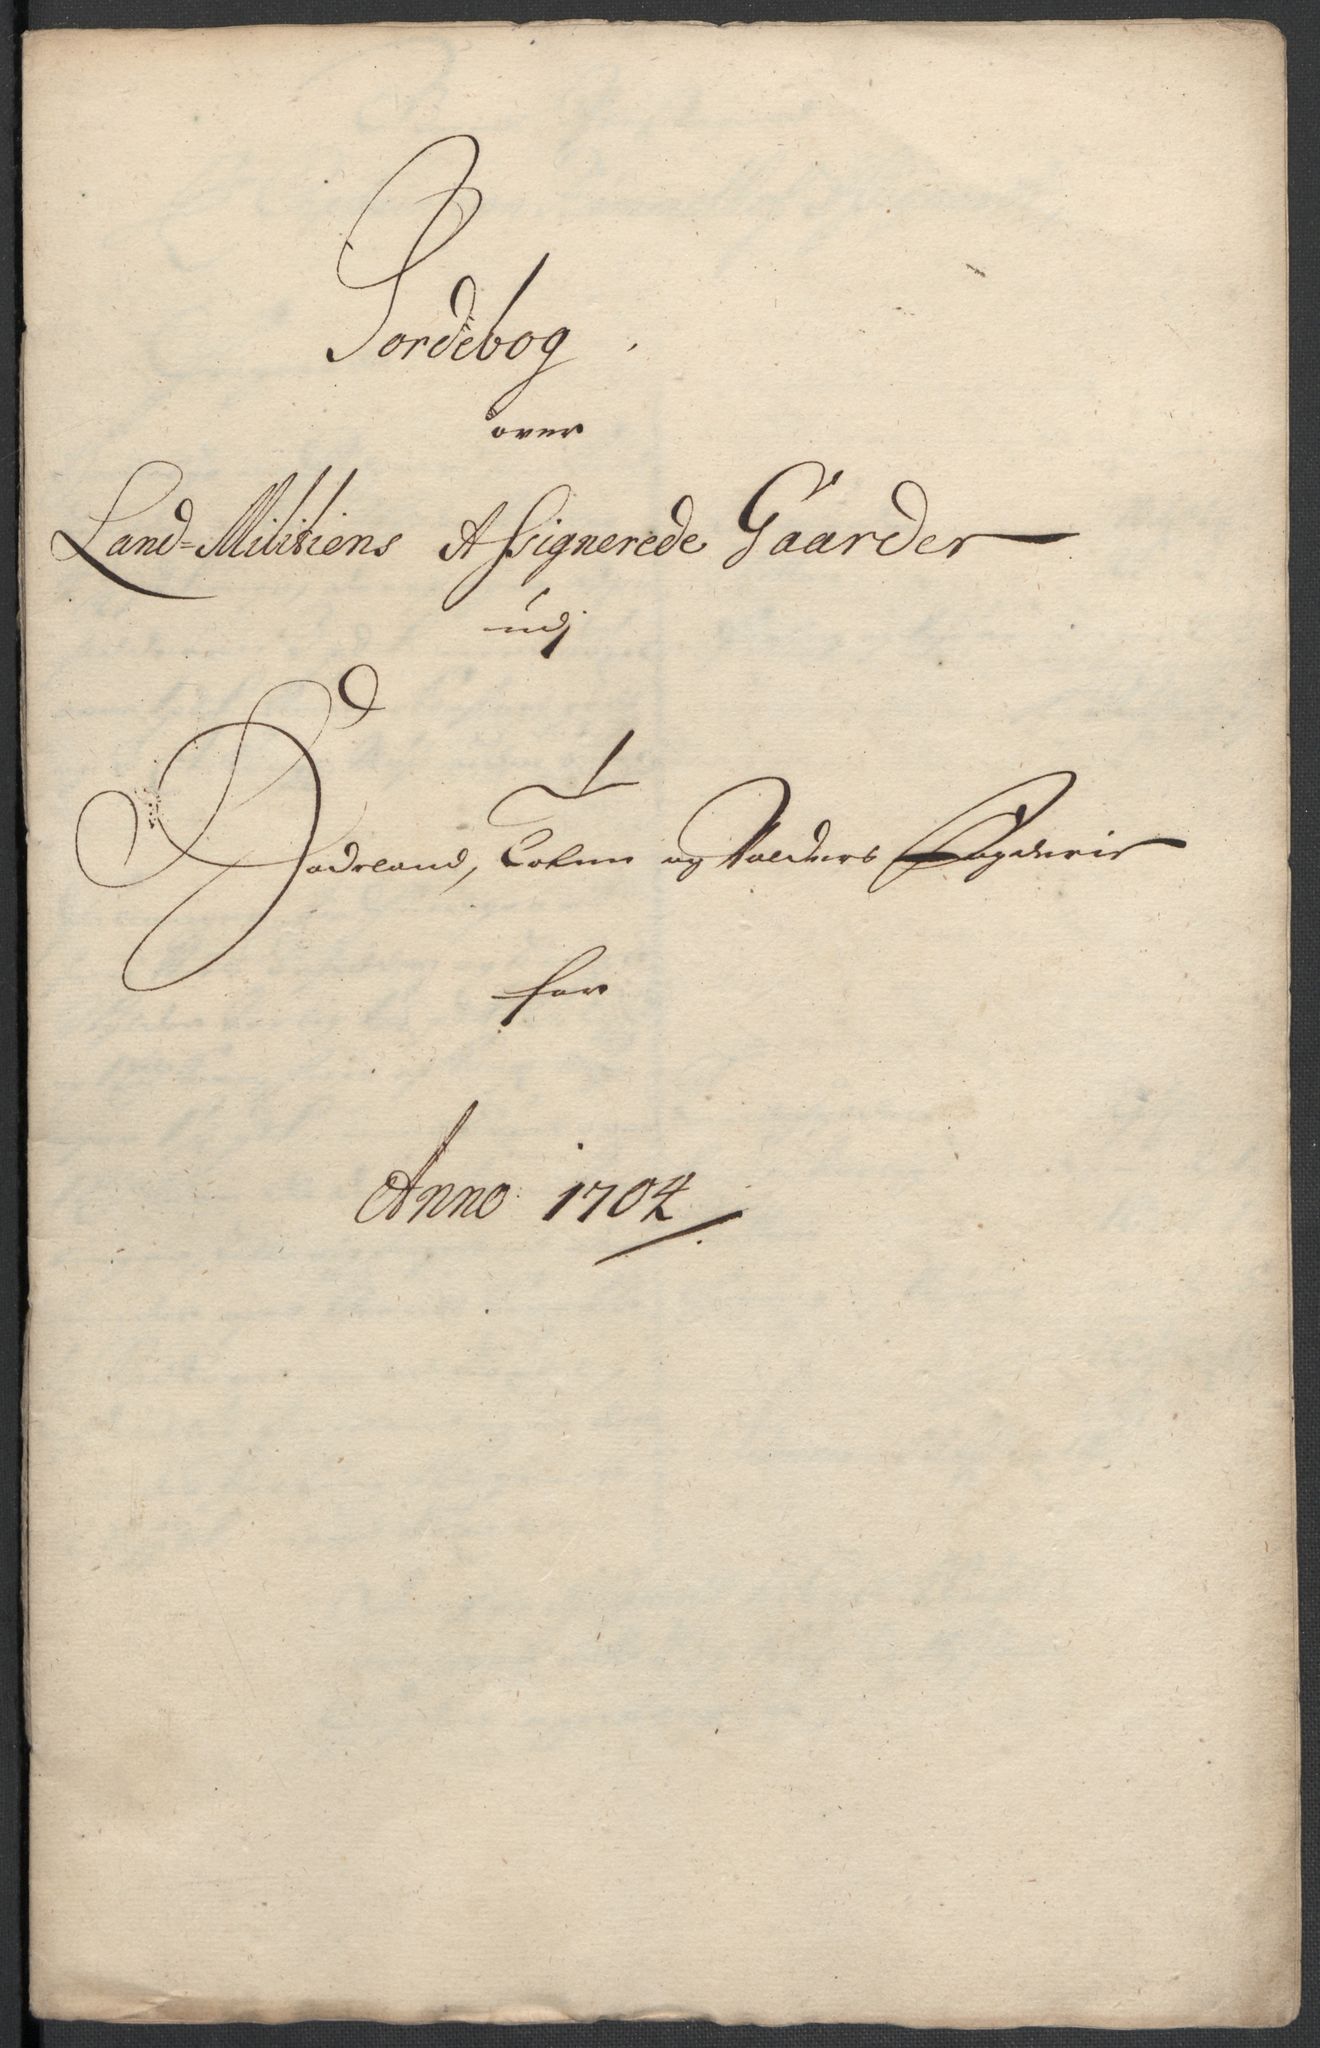 Jordebog
over
Land-Militiens Assignerede Gaarder
udj
Hadeland, Toten og Valders Fogderie
for
Anno 1704